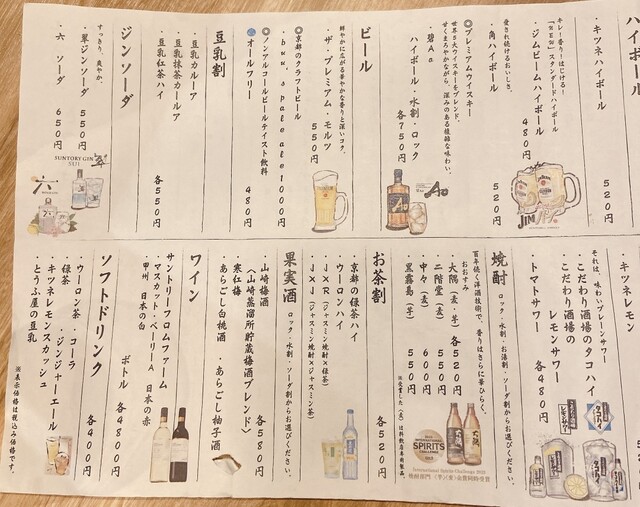 ハイボール
・キツネハイボール
520円
キレ、香り!はじける!
「NEW」スタンダードハイボール
・ジムビームハイボール
480円
愛され続けるおいしさ。
・角ハイボール
520円
◎プレミアムウイスキー
世界5大ウイスキーをブレンド。
せくまろやかながら 深みのある複雑な味わい。
碧Ao
ハイボール・水割・ロック
各750円
Ao
JIM BEAM
ビール
鮮やかに広がる華やかな香りと深いコク。
・ザ・プレミアム・モルツ
550円
◎京都のクラフトビール
・buu's pale ale
1000円
◎ノンアルコールビールテイスト飲料
オールフリー
480円
豆乳割
・豆乳カルーア
・豆乳抹茶カルーア
・豆乳紅茶ハイ
各550円
ジンソーダ
すっきり、爽やか。
・翠ジンソーダ 550円
・六 ソーダ 650円
SUNTORY GIN
翠
SUI
六
・キツネレモン
それは、味わいブレンサワー
・こだわり酒場のタコハイ
・こだわり酒場の
レモンサワー
・トマトサワー
各480円
焼酎
ロック・水割・お湯割・ソーダ割からお選びください。
百年続く洋酒技術で、香りはさらに華ひらく。
おおすみ
・大隅(麦・芋) 各520円
・二階堂(麦) 550円
・中々(麦) 600円
・黒霧島(芋) 550円
※受賞した(麦)は料飲店専用製品。
SPIRITS
International Spirits Challenge 2019
焼酎部門 (芋)(麦)金賞同時受賞
お茶割
・京都の緑茶ハイ
・ウーロンハイ
・J×R(ジャスミン焼酎×緑茶)
・J×J(ジャスミン焼酎×ジャスミン茶)
各520円
果実酒
ロック・水割・ソーダ割からお選びください。
・山崎梅酒
(山崎蒸溜所貯蔵梅酒ブレンド)
・寒紅梅
・あらごし白桃酒 ・あらごし柚子酒
各580円
ワイン
サントリーフロムファーム
・マスカット・ベーリーA 日本の赤
・甲州 日本の白
ボトル 各4800円
ソフトドリンク
・ウーロン茶 ・コーラ
・緑茶 ・ジンジャーエール
・キツネレモンスカッシュ
・とうふ屋の豆乳
各400円
※表示価格は税込み価格です。